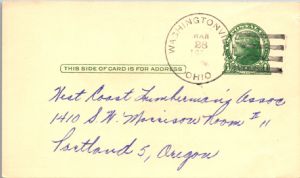 WASHINGTONVILLE
MAR
28
OHIO
THIS SIDE OF CARD IS FOR ADDRESS
West Coast Lumberman's Assoc
1410 S W. Morrison Room # 11
Portland 5, Oregon